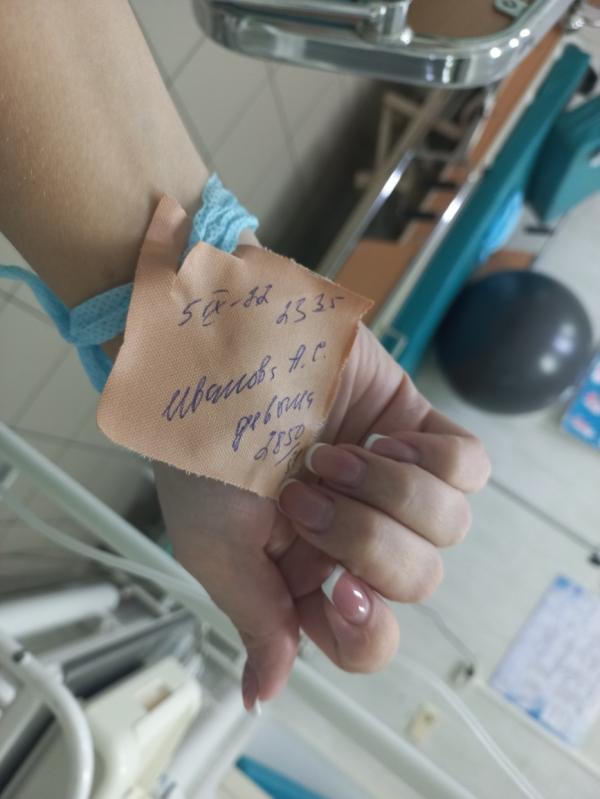 5 IX-22 2335
Иванова А.С.
девочка
2850